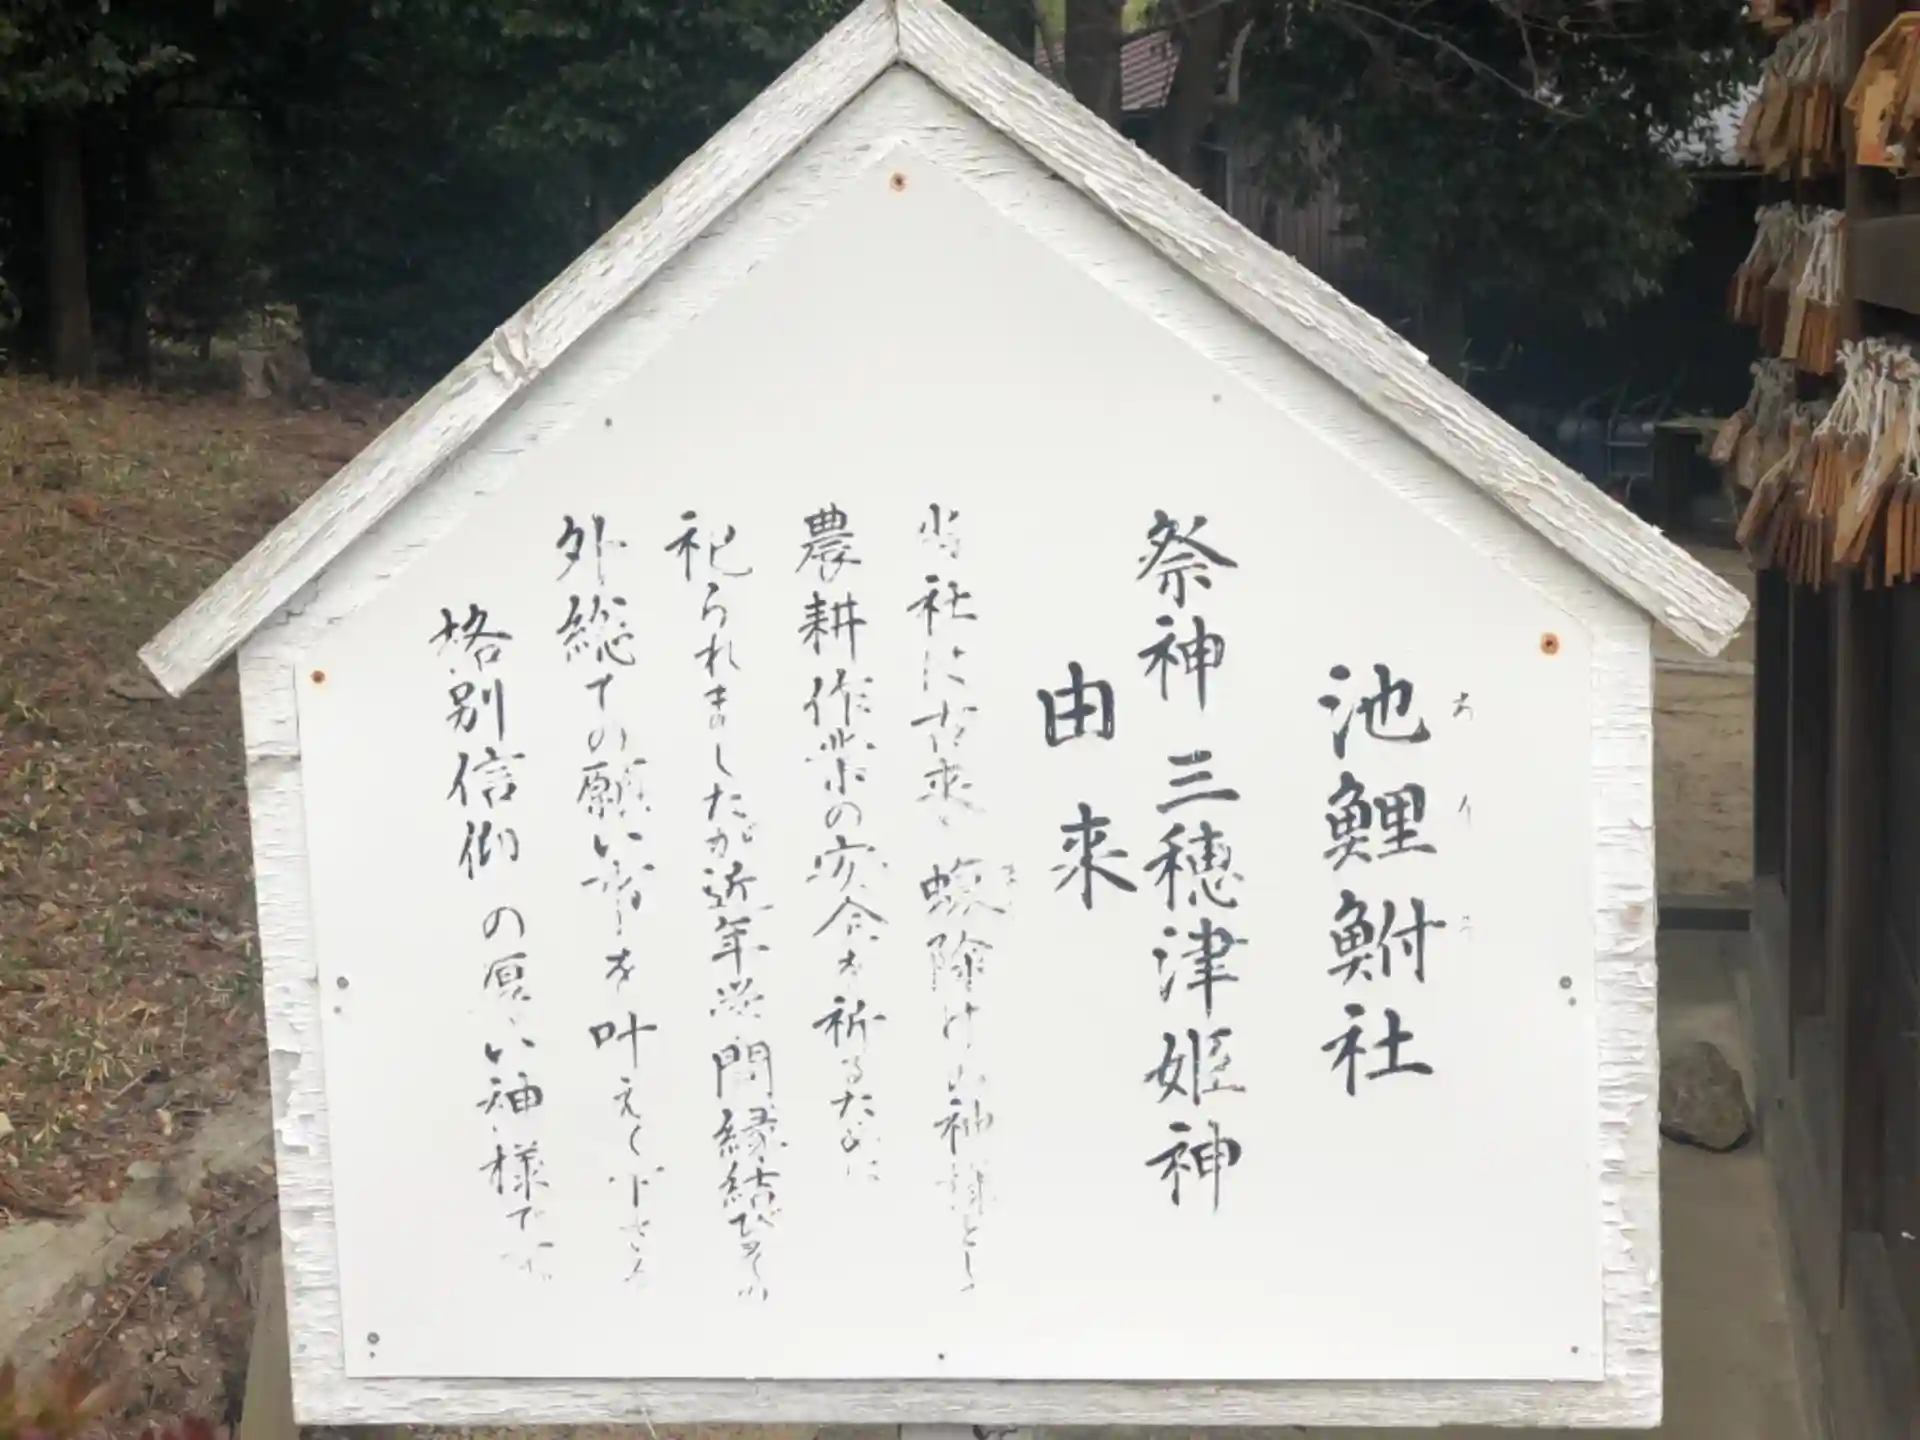 池鯉鮒社
祭神 三穂津姫神
由来
当社は古来、蝮除けの神様とし
農耕作業の安全を祈るために
祀られましたが近年学問縁結びその
外総ての願い事を叶えて下さる
格別信仰の厚い神様です